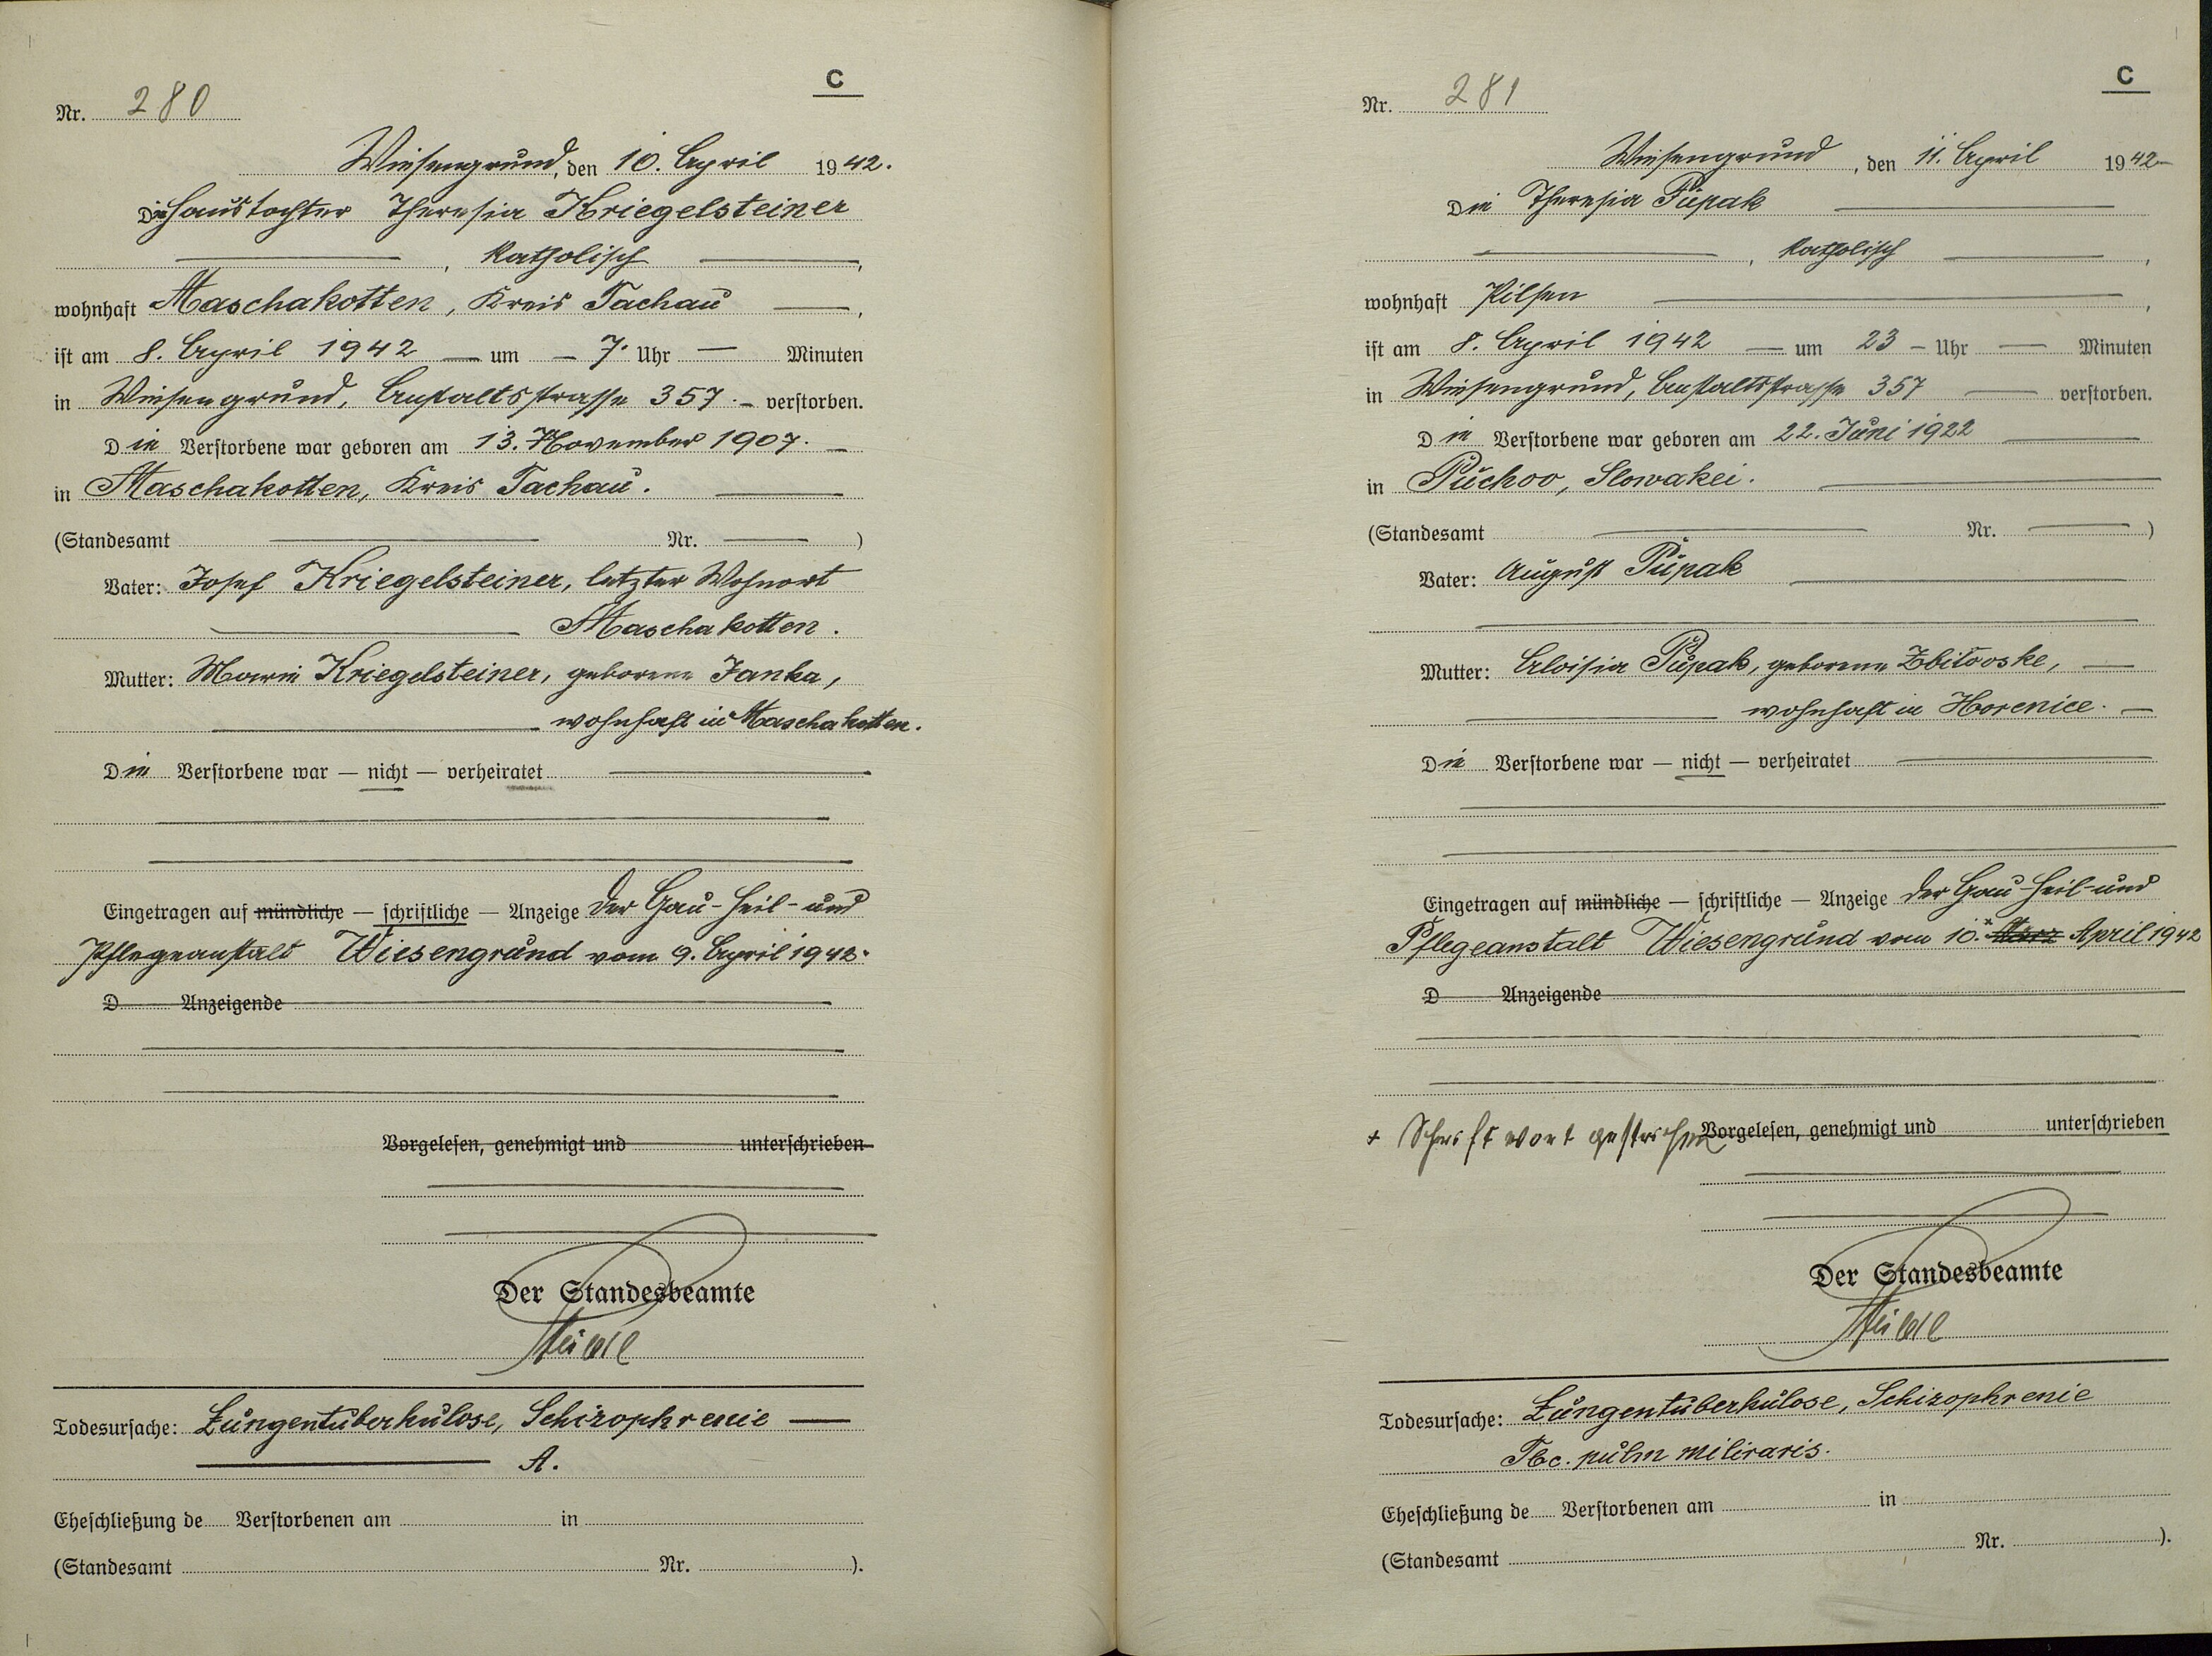 C
Nr. 280
Wiesengrund, den 10. April 1942.
Die Haustochter Theresia Kriegelsteiner
, katholisch ,
wohnhaft Maschakotten, Kreis Tachau ,
ist am 8. April 1942 um 7 Uhr Minuten
in Wiesengrund, Anstaltsstrasse 357. verstorben.
Die Verstorbene war geboren am 13. November 1907.
in Maschakotten, Kreis Tachau.
(Standesamt Nr. )
Vater: Josef Kriegelsteiner, letzter Wohnort
Maschakotten.
Mutter: Marie Kriegelsteiner, geborene Janka,
wohnhaft in Maschakotten.
Die Verstorbene war — nicht — verheiratet
Eingetragen auf mündliche — schriftliche — Anzeige der Gau-Heil- und
Pflegeanstalt Wiesengrund vom 9. April 1942.
D Anzeigende
Vorgelesen, genehmigt und unterschrieben
Der Standesbeamte
Todesursache: Lungentuberkulose, Schizophrenie
A.
Eheschließung de Verstorbenen am in
(Standesamt Nr. ).
C
Nr. 281
Wiesengrund, den 11. April 1942
Die Theresia Pupak
, katholisch ,
wohnhaft Pilsen ,
ist am 8. April 1942 um 23 Uhr Minuten
in Wiesengrund, Anstaltsstrasse 357 verstorben.
Die Verstorbene war geboren am 22. Juni 1922
in Puchoo, Slowakei.
(Standesamt Nr. )
Vater: August Pupak
Mutter: Aloisia Pupak, geborene
wohnhaft in Horenice.
Die Verstorbene war — nicht — verheiratet
Eingetragen auf mündliche — schriftliche — Anzeige der Gau-Heil- und
Pflegeanstalt Wiesengrund vom 10. März April 1942
D Anzeigende
+ Schriftwort gestrichen Vorgelesen, genehmigt und unterschrieben
Der Standesbeamte
Todesursache: Lungentuberkulose, Schizophrenie
Tbc. pulm miliraris.
Eheschließung de Verstorbenen am in
(Standesamt Nr. ).